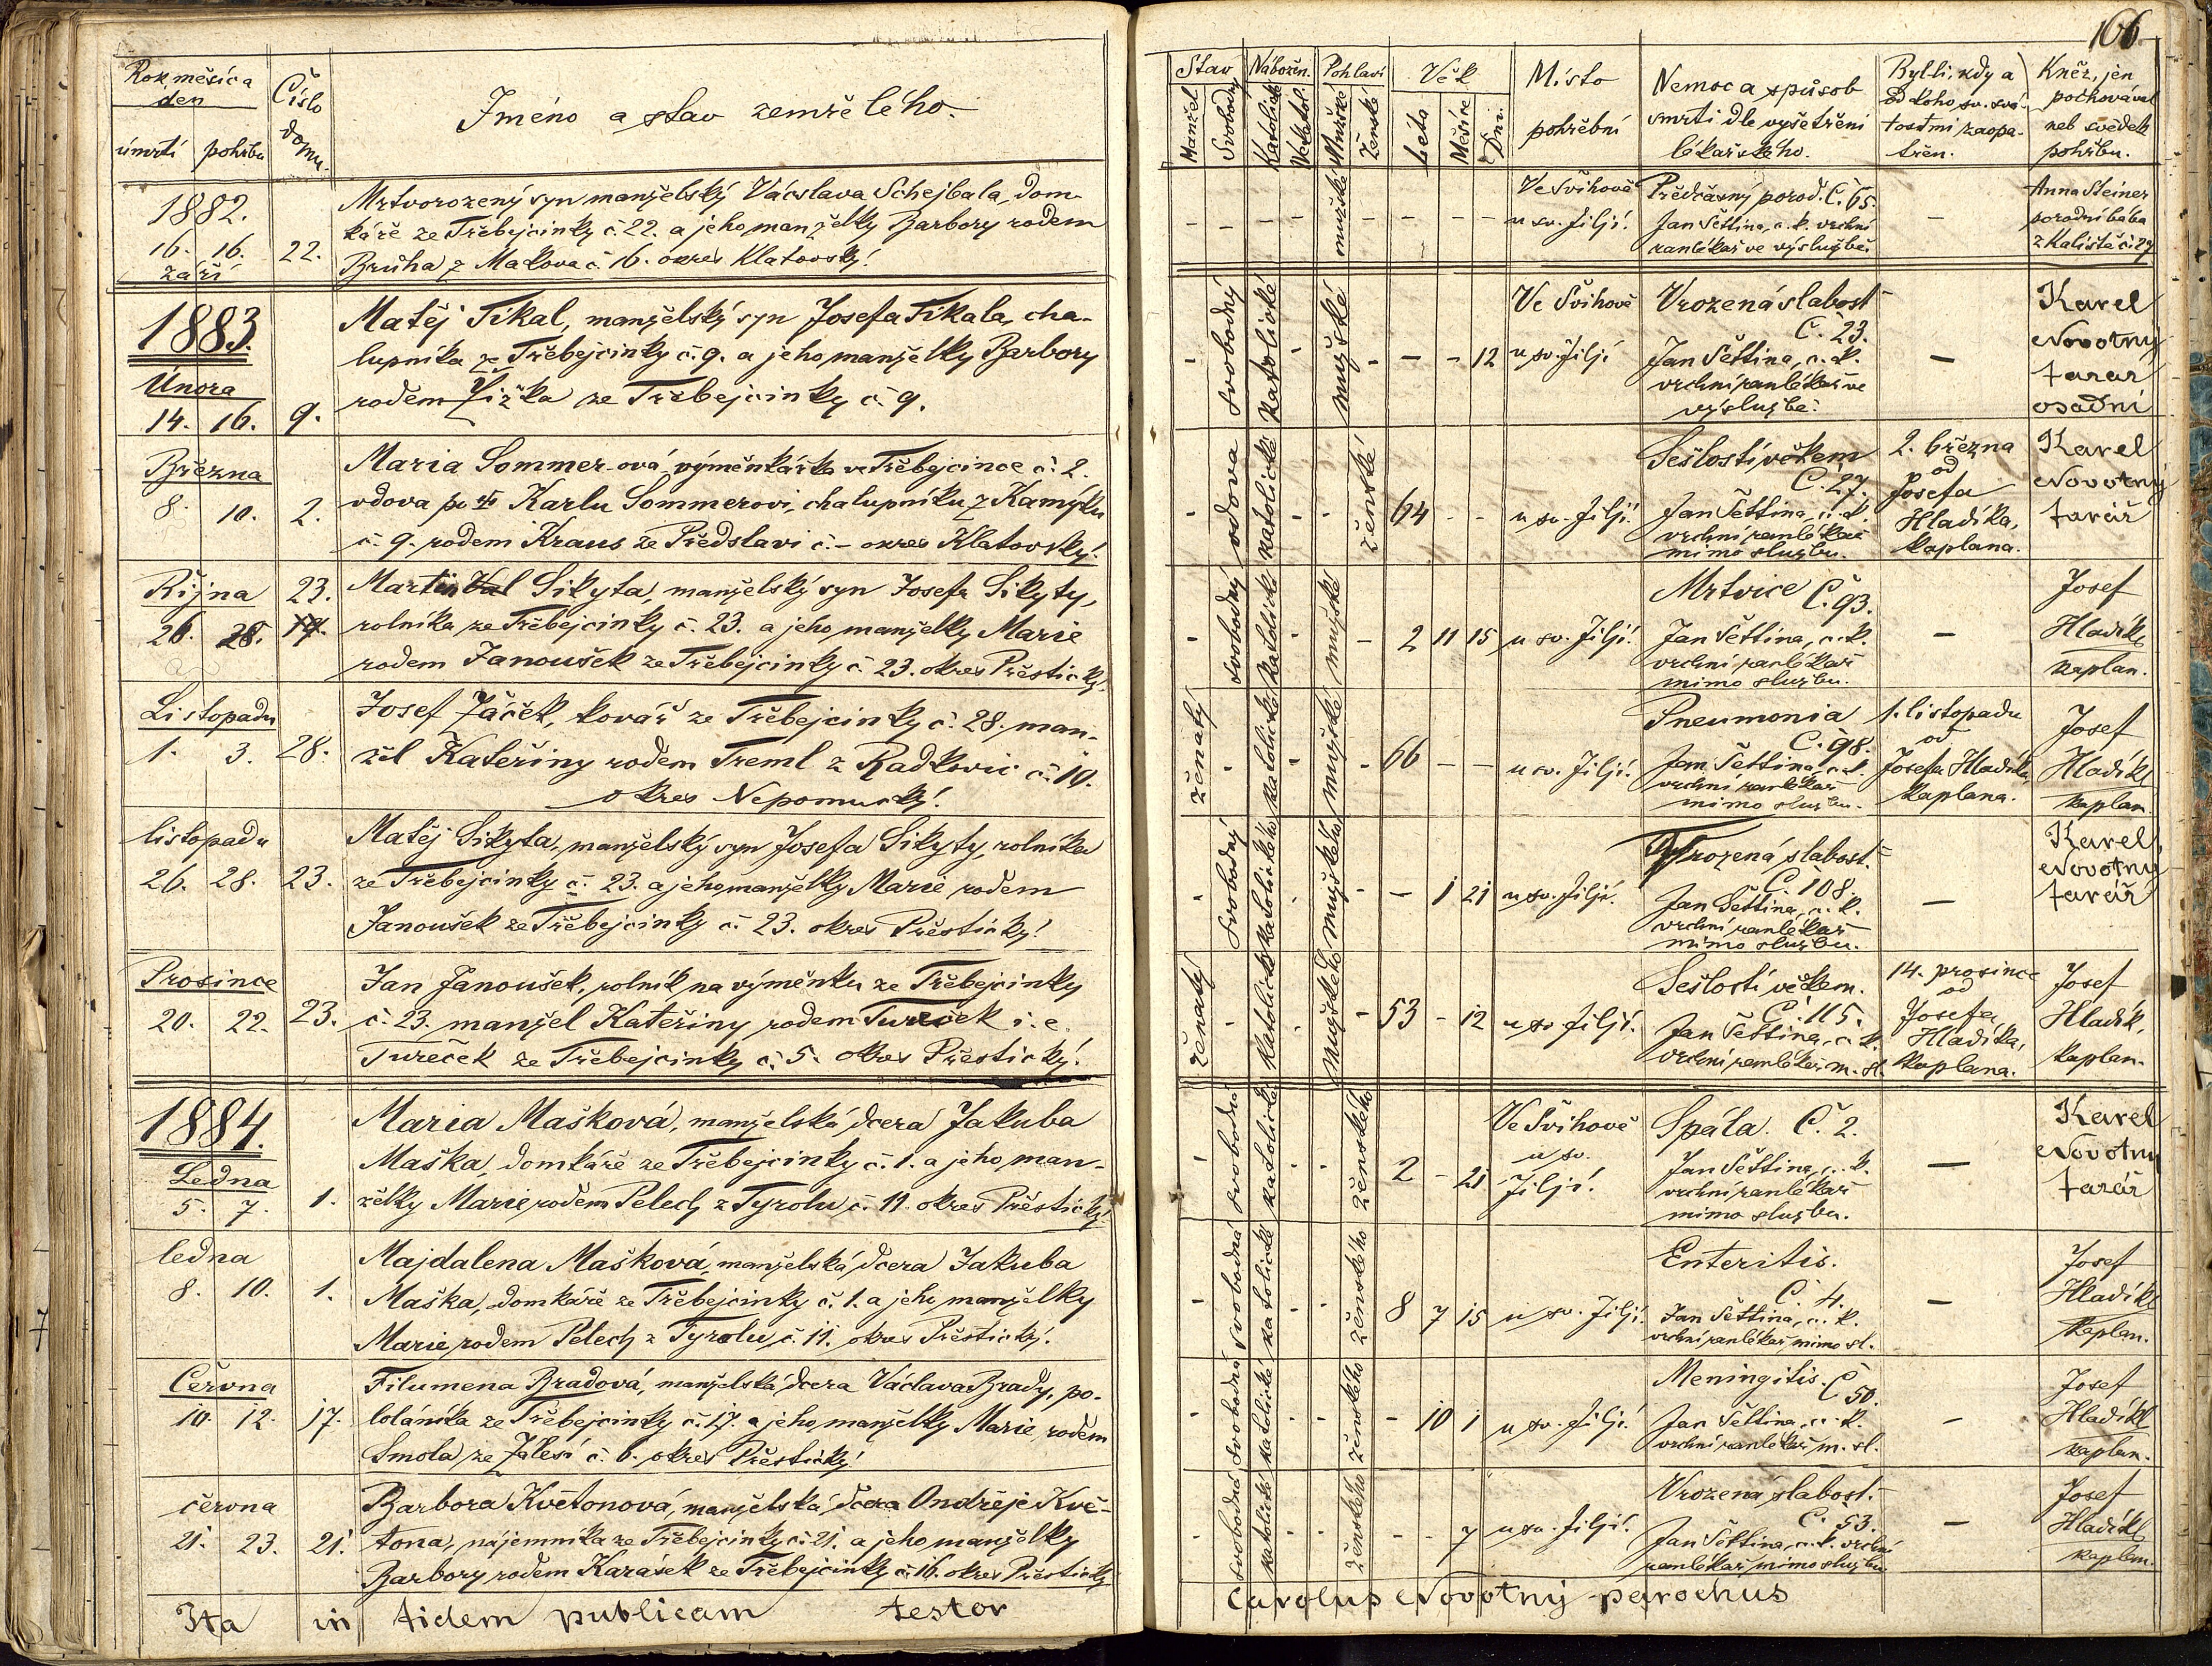 166
Rok měsíc a
den
úmrtí pohřbu
Číslo
domu.
Jméno a stav zemřelého.
Stav
Manžel
Svobodný
Nábožen.
Katolické
Nekatol.
Pohlaví
Mužské
Ženské
Věk
Léta
Měsíce
Dni.
Místo
pohřební
Nemoc a spůsob
smrti dle vyšetření
lékařského.
Byl-li, kdy a
od koho sv. svá-
tostmi zaopa-
třen.
Kněz, jen
pochovával
neb svědek
pohřbu.
1882.
16. 16. 22.
září
Mrtvorozený syn manželský Vácslava Schejbala, dom-
káře ze Třebejcinky č. 22. a jeho manželky Barbory rodem
Brůha z Makova č. 16. okres Klatovský.
- - - - mužské - - - -
Ve Švihově
u sv. Jiljí.
Předčasný porod. Č. 65.
Jan Šettina, c. k. vrchní
ranlékař ve výslužbě.
-
Anna Steiner
porodní bába
z Kaliště č. 29
1883.
Února
14. 16. 9.
Matěj Tikal, manželský syn Josefa Tikala, cha-
lupníka ze Třebejcinky č. 9. a jeho manželky Barbory
rodem Žižka ze Třebejcinky č. 9.
- svobodný katolické - mužské - - - 12
Ve Švihově
u sv. Jiljí
Vrozená slabost
Č. 23.
Jan Šettina, c. k.
vrchní ranlékař ve
výslužbě.
-
Karel
Novotný
farář
osadní
Března
8. 10. 2.
Maria Sommer-ová, výměnkářka ve Třebejcince č. 2.
vdova po † Karlu Sommerovi, chalupníku z Kamýku
č. 9. rodem Kraus ze Předslavi č. - okres Klatovský.
- vdova katolické - - ženské 64 - -
u sv. Jiljí.
Sešlostí věkem
Č. 27.
Jan Šettina, c. k.
vrchní ranlékař
mimo službu.
2. března
od
Josefa
Hladíka,
kaplana.
Karel
Novotný
farář
Října 23.
26. 28. 19.
Martin Sikyta, manželský syn Josefa Sikyty,
rolníka ze Třebejcinky č. 23. a jeho manželky Marie
rodem Janoušek ze Třebejcinky č. 23. okres Přestický.
- svobodný katolické - mužské - 2 11 15
u sv. Jiljí.
Mrtvice Č. 93.
Jan Šettina, c. k.
vrchní ranlékař
mimo službu.
-
Josef
Hladík
kaplan.
Listopadu
1. 3. 28.
Josef Žáček, kovář ze Třebejcinky č. 28. man-
žel Kateřiny rodem Treml z Radkovic č. 10.
okres Nepomucký.
ženatý - katolické - mužské - 66 - -
u sv. Jiljí.
Pneumonia
Č. 98.
Jan Šettina, c. k.
vrchní ranlékař
mimo službu.
1. listopadu
od
Josefa Hladíka
kaplana.
Josef
Hladík
kaplan
listopadu
26. 28. 23.
Matěj Sikyta, manželský syn Josefa Sikyty, rolníka
ze Třebejcinky č. 23. a jeho manželky Marie rodem
Janoušek ze Třebejcinky č. 23. okres Přestický.
- svobodný katolického - mužského - - 1 21
u sv. Jiljí.
Vrozená slabost.
Č. 108.
Jan Šettina, c. k.
vrchní ranlékař
mimo službu.
-
Karel
Novotný
farář
Prosince
20. 22. 23.
Jan Janoušek, rolník na výměnku ze Třebejcinky
č. 23. manžel Kateřiny rodem Tureček i. e.
Tureček ze Třebejcinky č. 5. okres Přestický.
ženatý - katolické - mužského - 53 - 12
u sv. Jiljí.
Sešlostí věkem.
Č. 115.
Jan Šettina, c. k.
vrchní ranlékař m. sl.
14. prosince
od
Josefa
Hladíka,
kaplana.
Josef
Hladík,
kaplan.
1884.
Ledna
5. 7. 1.
Maria Mašková, manželská dcera Jakuba
Maška, domkáře ze Třebejcinky č. 1. a jeho man-
želky Marie rodem Pelech z Tyrolu č. 11. okres Přestický.
- svobodná katolické - - ženského 2 - 21
Ve Švihově
u sv.
Jiljí.
Spála. Č. 2.
Jan Šettina, c. k.
vrchní ranlékař
mimo službu.
-
Karel
Novotný
farář
ledna
8. 10. 1.
Majdalena Mašková, manželská dcera Jakuba
Maška, domkáře ze Třebejcinky č. 1. a jeho manželky
Marie rodem Pelech z Tyrolu č. 11. okres Přestický.
- svobodná katolické - - ženského 8 7 15
u sv. Jiljí.
Enteritis.
Č. 4.
Jan Šettina, c. k.
vrchní ranlékař mimo sl.
-
Josef
Hladík
kaplan.
Června
10. 12. 17.
Filumena Bradová, manželská dcera Václava Brady, po-
loláníka ze Třebejcinky č. 17. a jeho manželky Marie, rodem
Smola ze Zálesí č. 6. okres Přestický.
- svobodná katolické - - ženského - 10 1
u sv. Jiljí.
Meningitis. Č 50.
Jan Šettina, c. k.
vrchní ranlékař m. sl.
-
Josef
Hladík
kaplan.
června
21. 23. 21.
Barbora Květonová, manželská dcera Ondřeje Kvě-
tona, nájemníka ze Třebejcinky č. 21. a jeho manželky
Barbory rodem Karásek ze Třebejcinky č. 16. okres Přestický
- svobodná katolické - - ženského - - 7
u sv. Jiljí.
Vrozená slabost.
Č. 53.
Jan Šettina, c. k. vrchní
ranlékař mimo službu
-
Josef
Hladík
kaplan.
Ita in fidem publicam testor
Carolus Novotný parochus